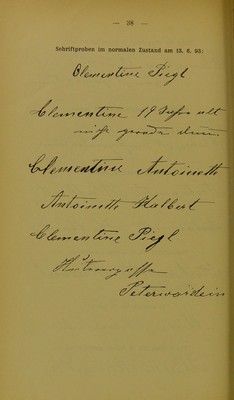 — 98 —
Schriftproben im normalen Zustand am 12. 6. 93:
Clementine Piegl
Clementine 19 Jahre alt
nicht gerade
Clementine Antoinette
Antoinette Halbert
Clementine Piegl
Peterwardein